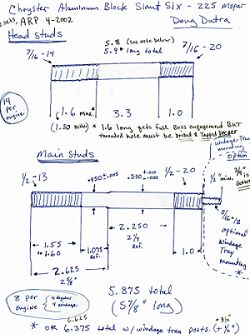 Chrysler Aluminum Block Slant Six - 225 Mopar
ARP 4-2002
Doug Dutra
Head studs
5.8 (see note below)
5.9" long total
7/16-14
7/16-20
14 per engine
1.6 max*
3.3
1.0
(1.50
* 1.6 long gets full Boss engagement But
threaded hole must be Drilled & Tapped Deeper
Main Studs
Windage Tray
option
1/2-13
1/2-20
1.55
to 1.60
1.075
REF.
2.250
2 1/4
REF.
1.0
2.625
2 5/8"
optional
Windage
Tray
mounting
*
5.875 total
(5 7/8" long)
8 per engine
6.625
* OR 6.375 total w/ windage tray posts.